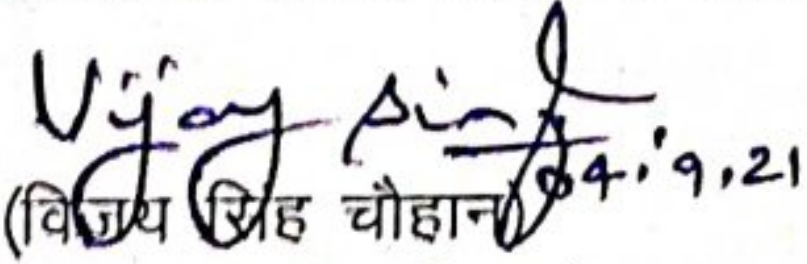 Vijay Singh
04.9.21
(विजय सिंह चौहान)